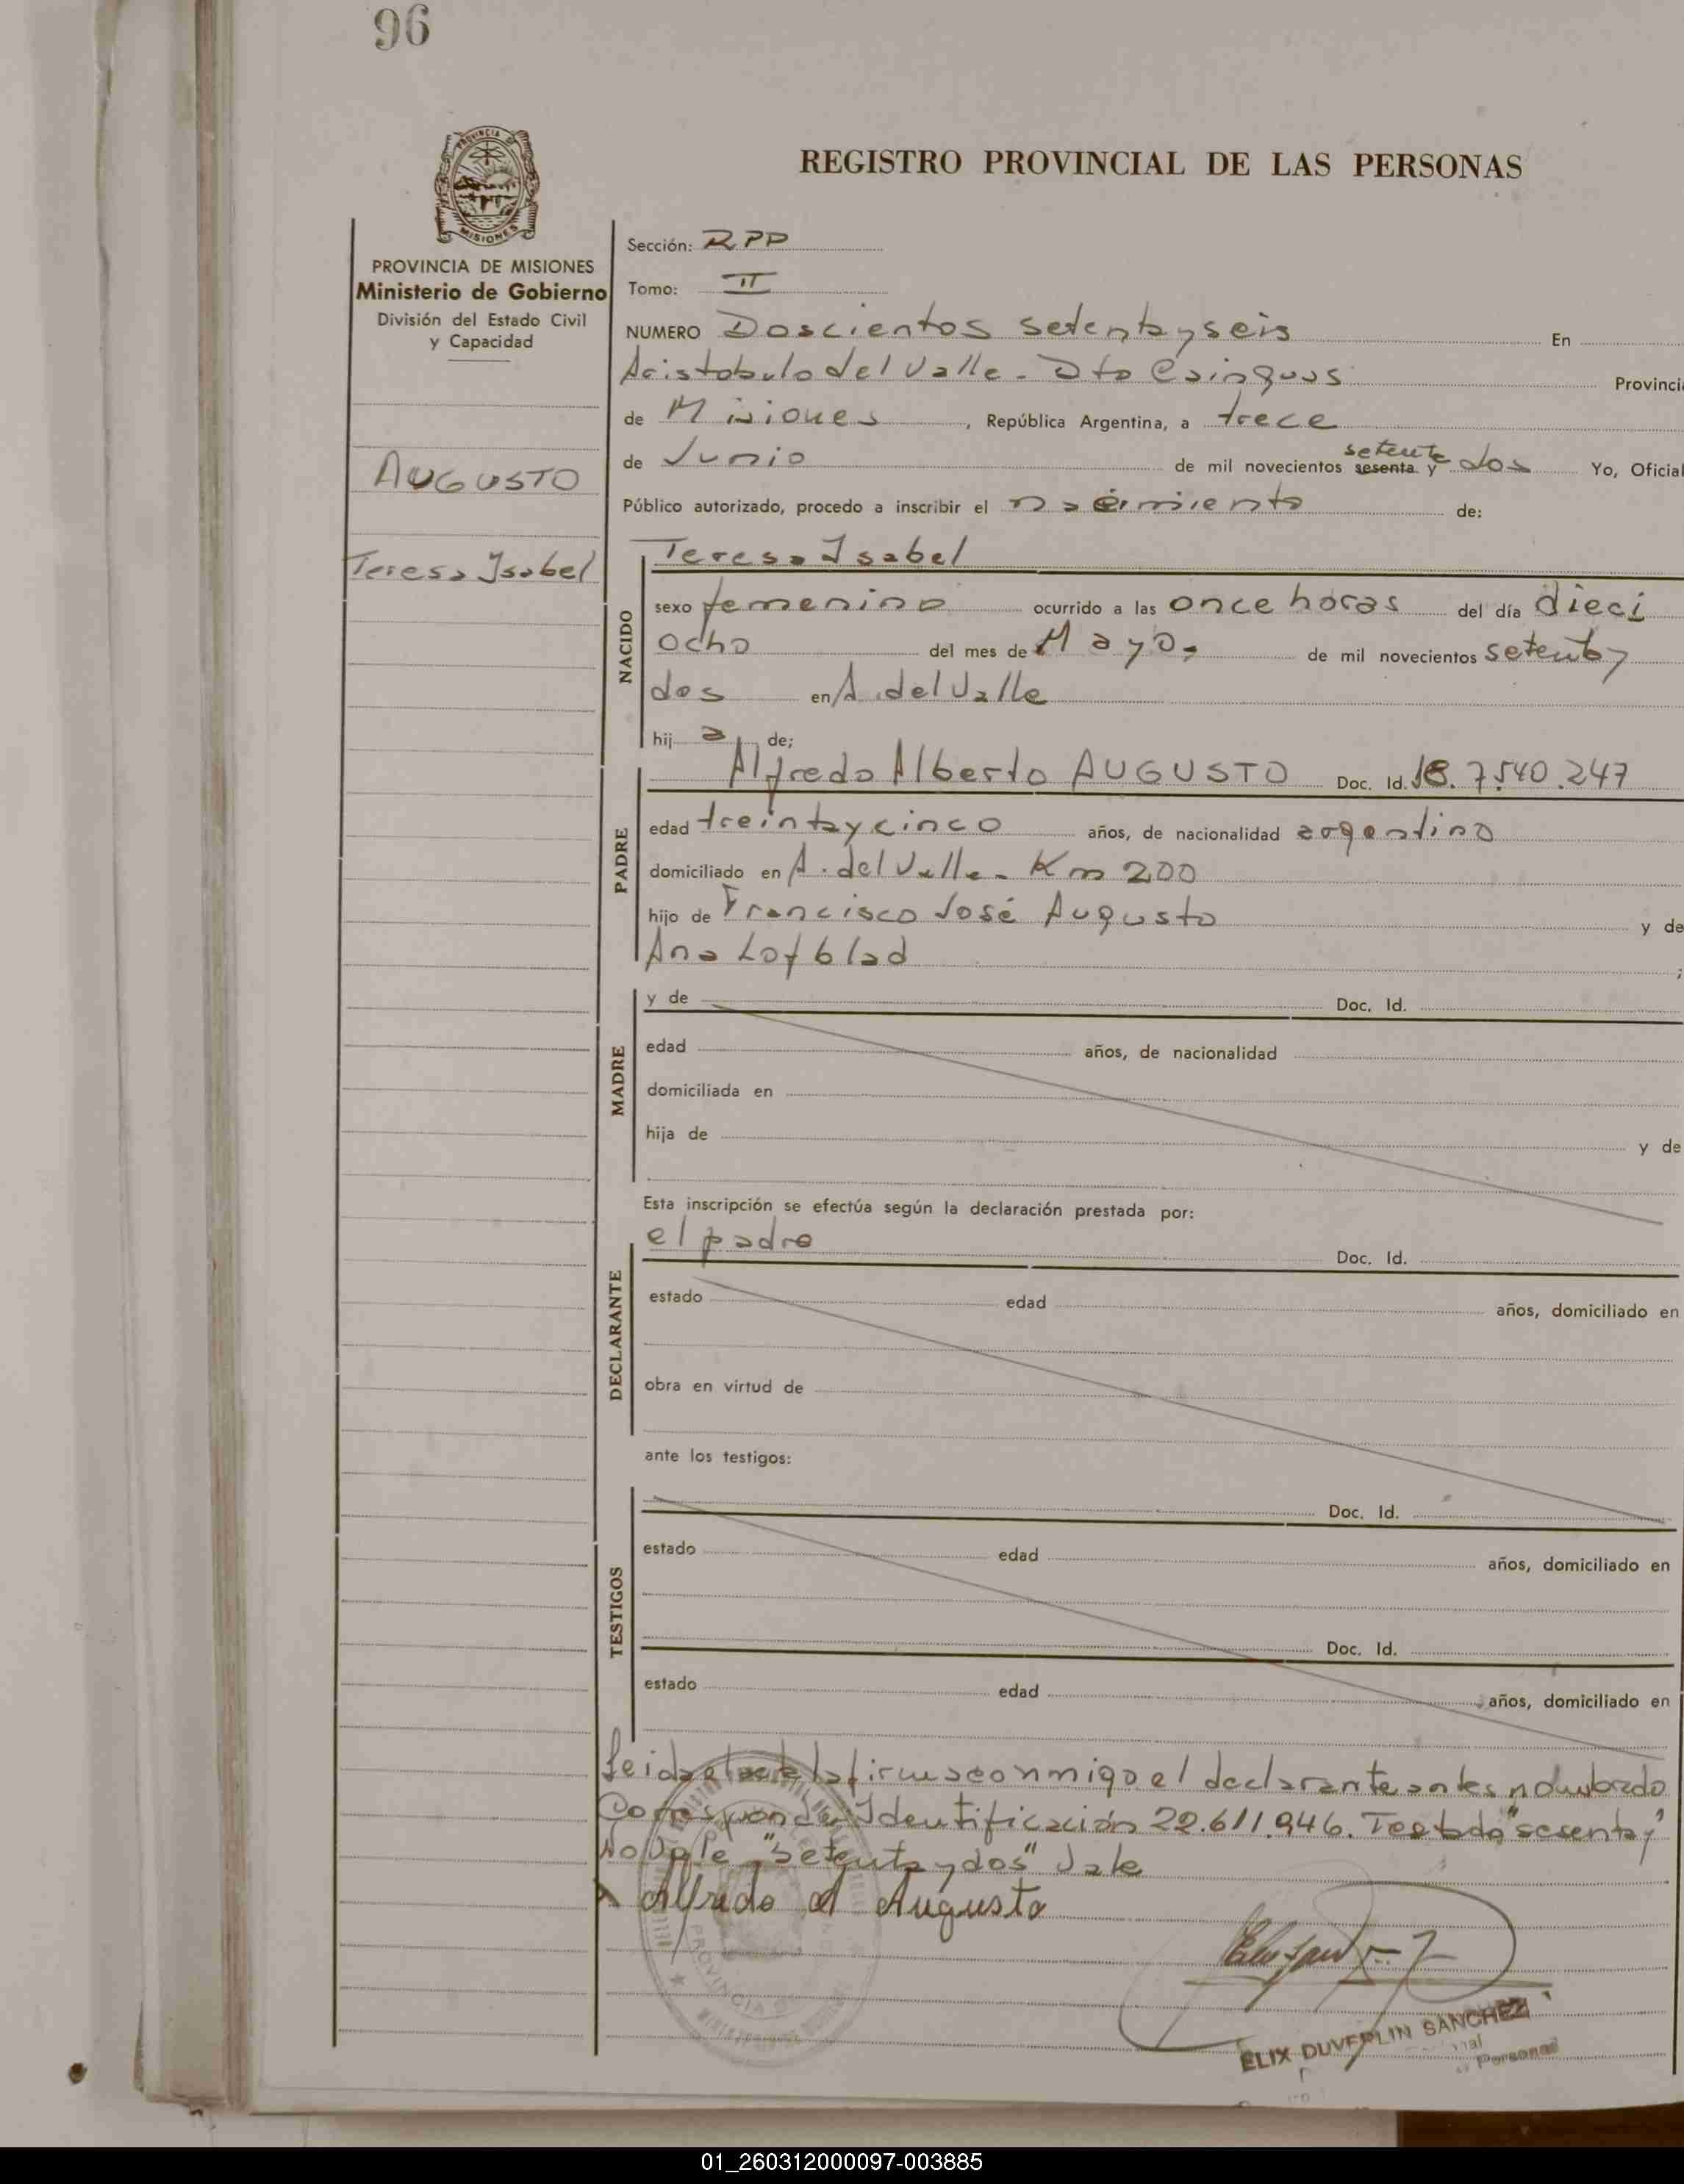 96
PROVINCIA
MISIONES
REGISTRO PROVINCIAL DE LAS PERSONAS
PROVINCIA DE MISIONES
Ministerio de Gobierno
División del Estado Civil
y Capacidad
AUGUSTO
Teresa Isabel
Sección: RPP
Tomo: II
NUMERO Doscientos setenta y seis En
Aristobulo del Valle - Dto Cainguas Provinci
de Misiones, República Argentina, a trece
setenta
de Junio de mil novecientos sesenta y dos Yo, Oficial
Público autorizado, procedo a inscribir el nacimiento de:
NACIDO
Teresa Isabel
sexo femenino ocurrido a las once horas del día dieci
ocho del mes de Mayo, de mil novecientos setenta y
dos en A. del Valle
hij a de;
PADRE
Alfredo Alberto AUGUSTO Doc. Id. 18. 7.540.247
edad treinta y cinco años, de nacionalidad argentino
domiciliado en A. del Valle - Km 200
hijo de Francisco José Augusto y de
Ana Lofblad ;
MADRE
y de Doc. Id.
edad años, de nacionalidad
domiciliada en
hija de y de
Esta inscripción se efectúa según la declaración prestada por:
DECLARANTE
el padre Doc. Id.
estado edad años, domiciliado en
obra en virtud de
ante los testigos:
TESTIGOS
Doc. Id.
estado edad años, domiciliado en
Doc. Id.
estado edad años, domiciliado en
Leida el acta la firma conmigo el declarante antes nombrado
Corresponde Identificación 22.611.946. Testado "sesenta y"
No Vale "setenta y dos" Vale
Alfredo A Augusto
PROVINCIA
ELIX DUVERLIN SANCHEZ
Personas
01_260312000097-003885